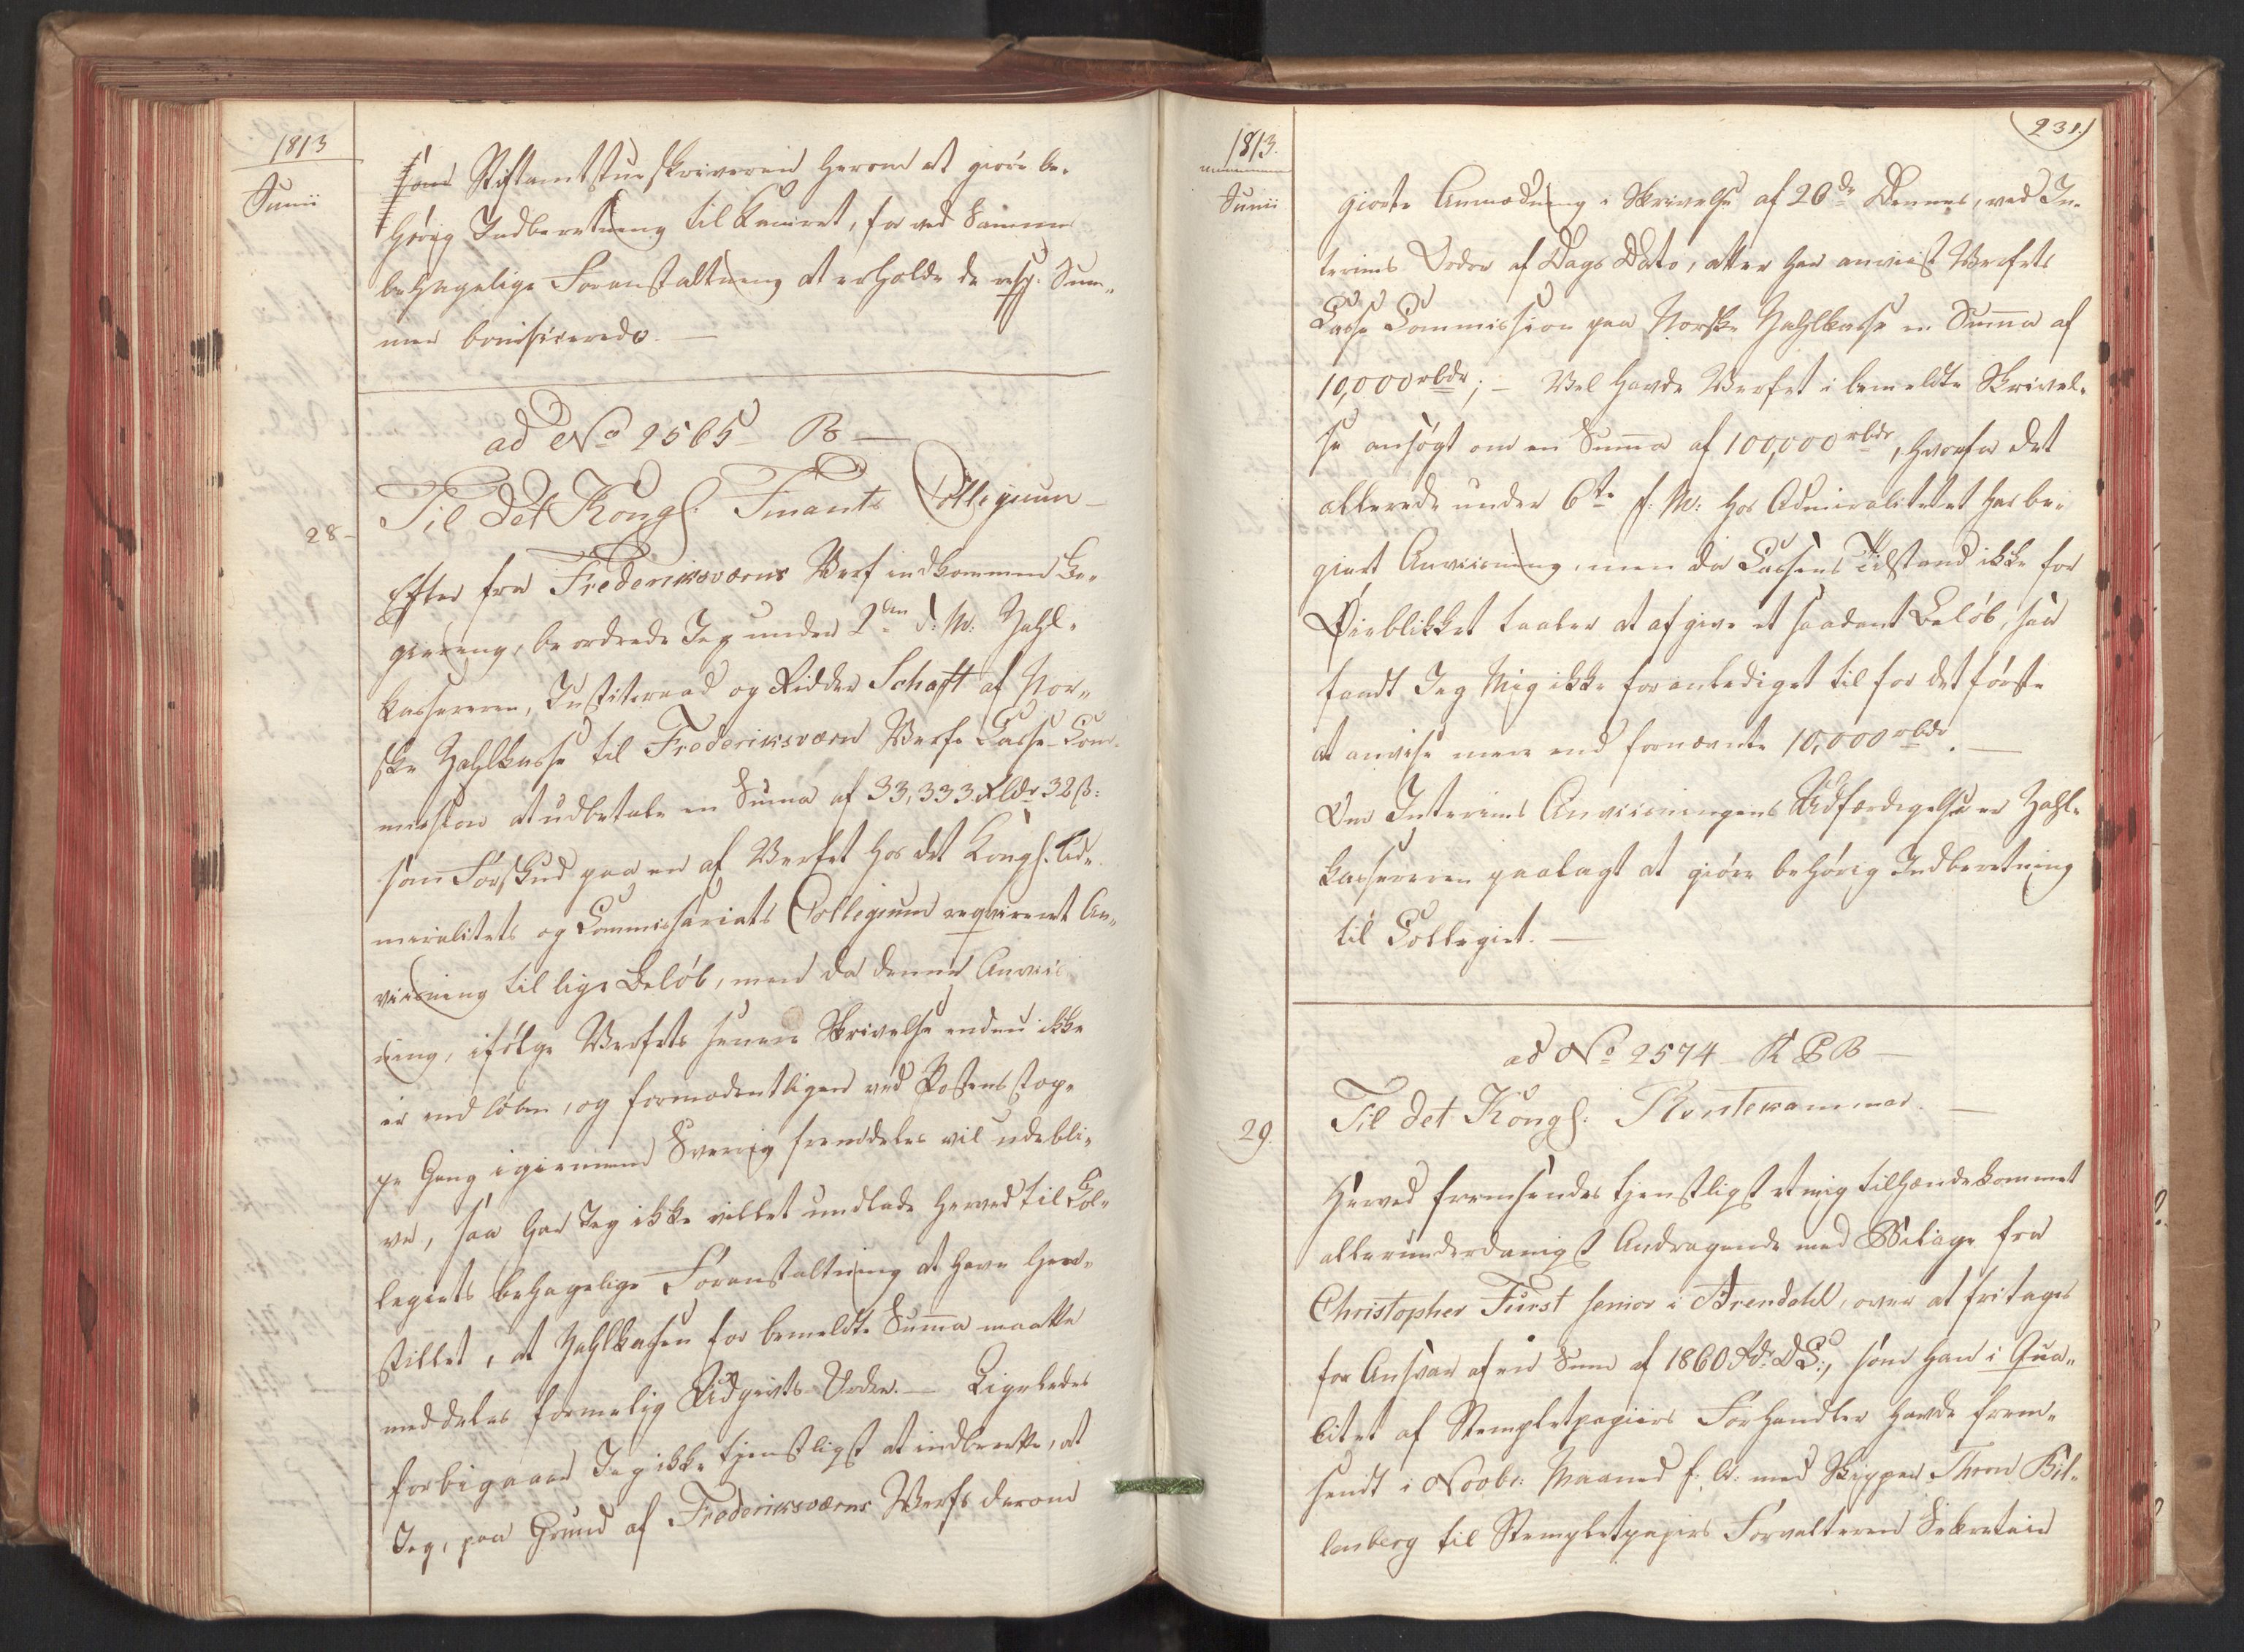 1813
Junii
som Stiftamtstueskriveren herom at giøre be„
hørig Indberetning til Kameret, for ved Samme
behagelige Foranstaltning at erholde de resp: Sum„
mer bonificerede. —
ad No 2565 B —
Til det Kongl. Finants Collegium —
28 —
Efter fra Frederiksværns Verf indkommen Be„
giering, beordrede Jeg under 2den d: M: Zahl„
kassereren, Justitsraad og Ridder Schafft af Nor„
ske Zahlkasse til Frederiksværns Verfs Casse-Com„
mission at udbetale en Suma af 33,333 Rbdr 32 ß:
som Forskud paa en af Verfet hos det Kongl. Ad„
miralitets og Commissariats Collegium reqvireret An„
viisning til lige Beløb, men da denne Anviis
ning, ifølge Verfets senere Skrivelse endnu ikke
er indløben, og formodentligen ved Postens stop„
pe Gang igiennem Sverrig fremdeles vil udebli„
ve, saa har Jeg ikke villet undlade herved til Col„
legiets behagelige Foranstaltning at have hen„
stillet, at Zahlkassen for bemeldte Summa maatte
meddeles formelig Udgivts-Ordre. — Ligeledes
forbigaaer Jeg ikke tjenstligst at indberette, at
Jeg, paa Grund af Frederiksværns Verfs derom
231.)
1813.
Junii
giorte Anmodning i Skrivelse af 26de Dennes, ved In„
terims Ordre af Dags Dato, atter har anviist Verfets
Casse Commission paa Norske Zahlkasse en Summa af
10,000 rbdr; — Vel havde Verfet i bemeldte Skrivel„
se ansøgt om en Summa af 100,000 rbdr, hvorfor det
allerede under 6te f: M: hos Admiralitetet har be„
giert Anviisning, men da Cassens Tilstand ikke for
Øieblikket taaler at afgive et saadant Beløb, saa
fandt Jeg Mig ikke foranlediget til for det første
at anvise mere end fornævnte 10,000 rbdr. —
Om Interims Anviisningens Udfærdigelse er Zahl„
kassereren paalagt at giøre behørig Indberetning
til Collegiet. —
ad No 2574 K P B —
Til det Kongl: Rentekammer. —
29.
Herved fremsendes tjenstligst et mig tilhændekommet
allerunderdanigst Andragende med Bilage fra
Christopher Fürst senior i Arendahl, over at fritages
for Ansvar af en Sum af 1860 Rd. D. C., som han i Qua„
litet af Stempletpapiirs Forhandler havde frem„
sendt i Novbr: Maaned f. A. med Skipper Thron Bil„
lenberg til Stempletpapiirs Forvalteren Sekretair